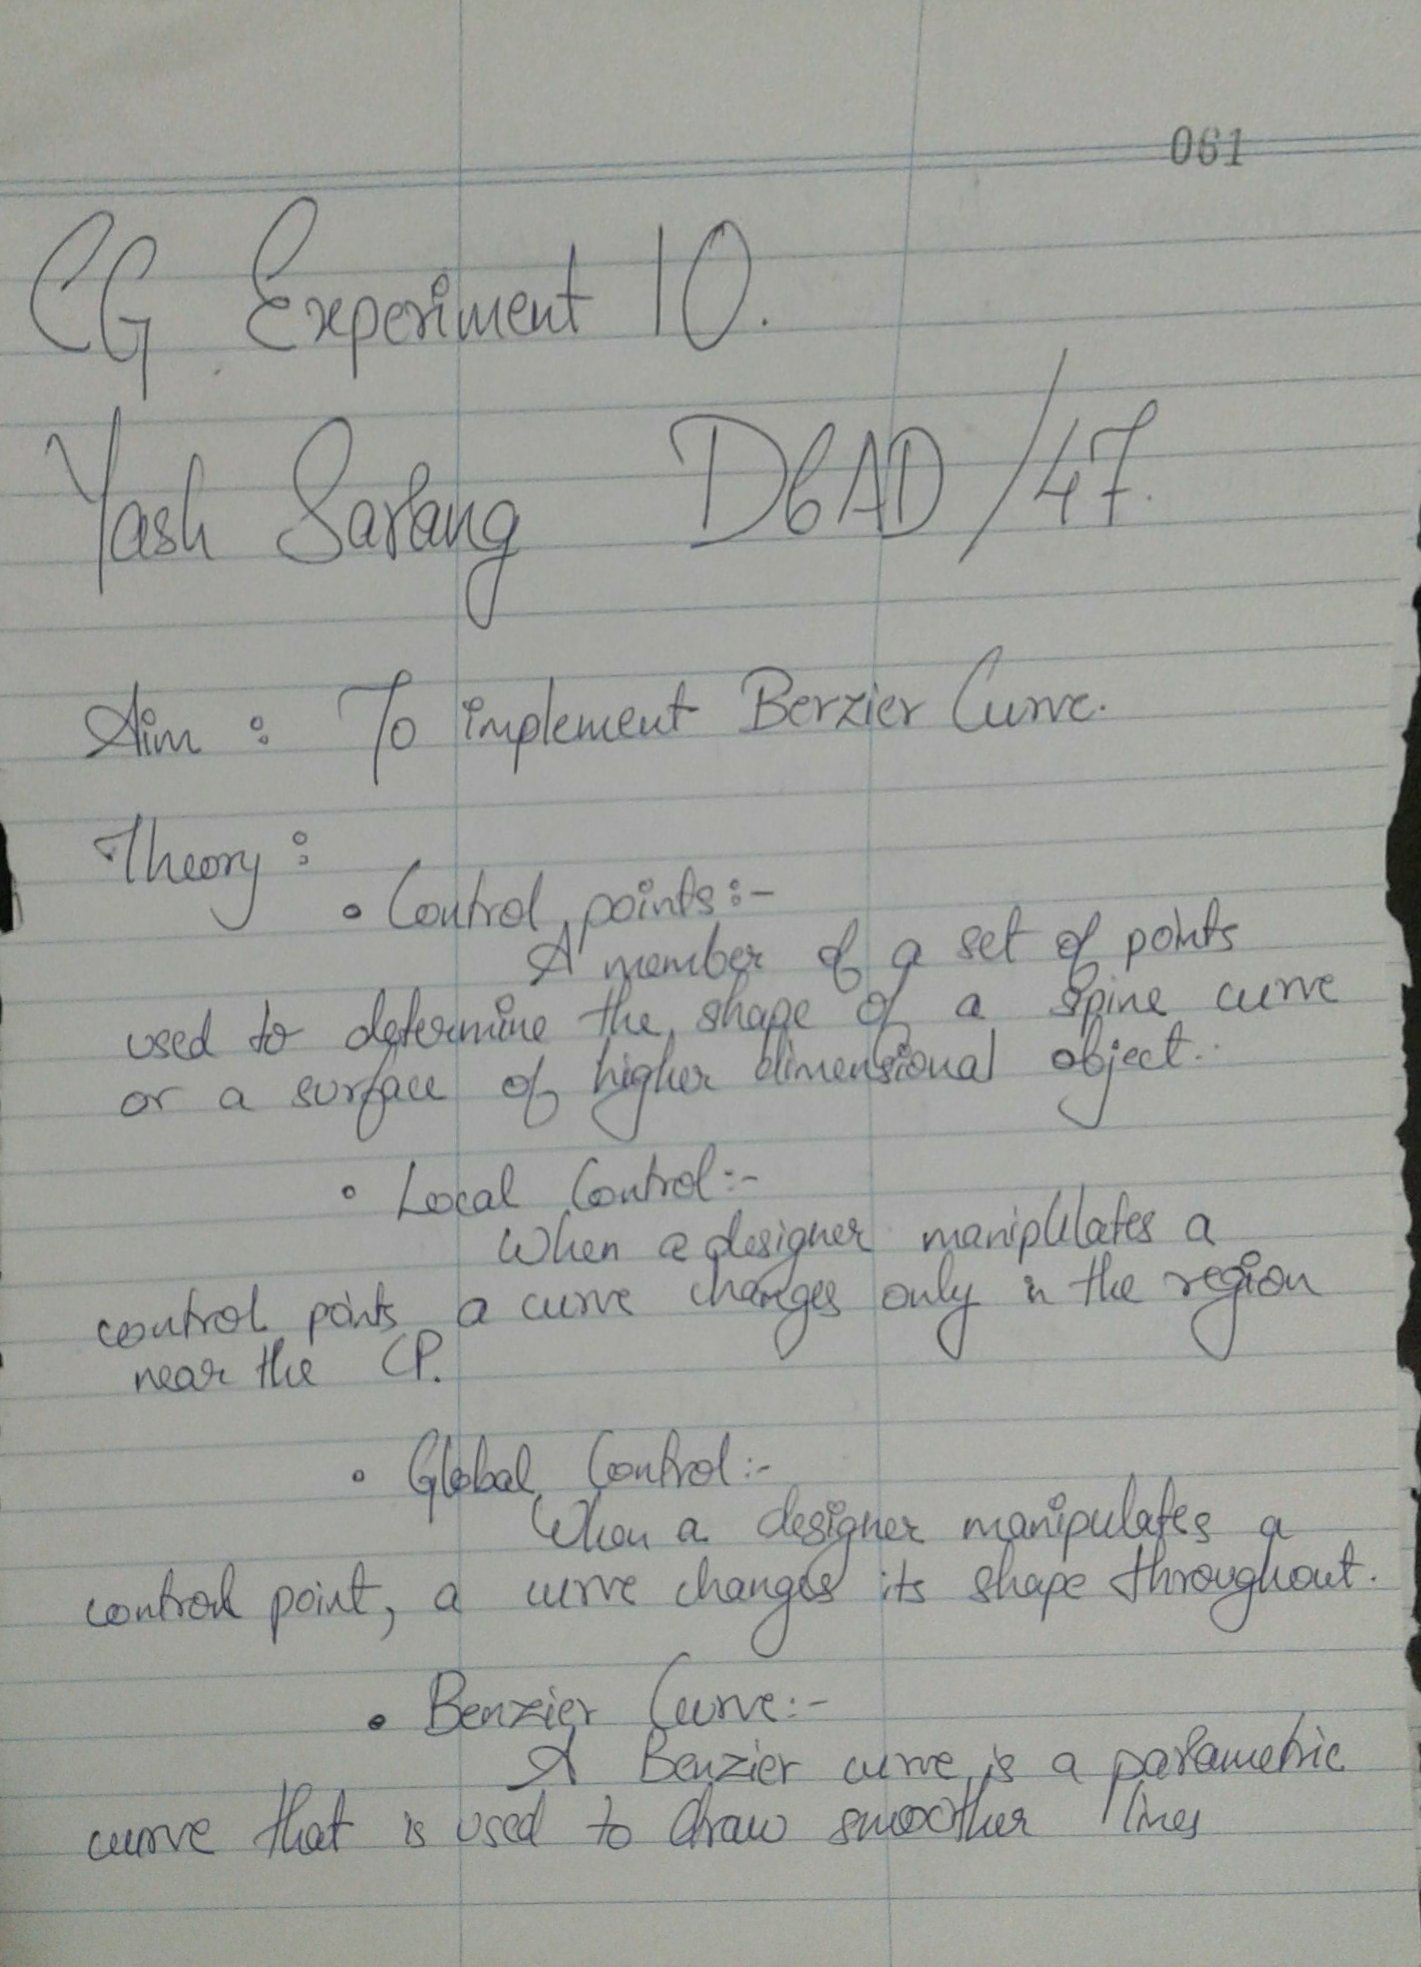 061
CG Experiment 10.
Yash Sarang D6AD/47.
Aim : To implement Berzier Curve.
Theory :
• Control points :-
A member of a set of points
used to determine the shape of a spine curve
or a surface of higher dimensional object.
• Local Control :-
When a designer manipulates a
control points a curve changes only in the region
near the CP.
• Global Control :-
When a designer manipulates a
control point, a curve changes its shape throughout.
• Benzier Curve :-
A Benzier curve is a parametric
curve that is used to draw smoother lines